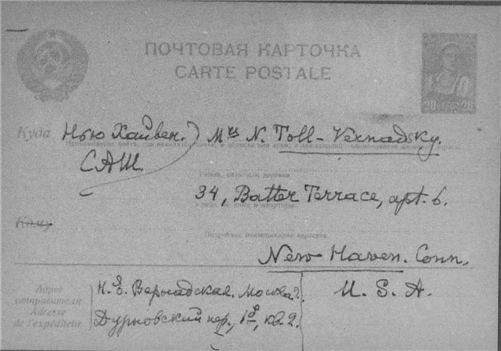 ПОЧТОВАЯ КАРТОЧКА
CARTE POSTALE
Куда Нью Хайвен. Mrs N. Toll-Vernadsky.
САШ
34, Batter Terrace, apt. 6.
Кому
New Haven. Conn.
U. S. A.
Адрес отправителя
Adresse de l'expéditeur
Н. Е. Вернадская. Москва 2.
Дурновский пер., 1б, кв. 2.